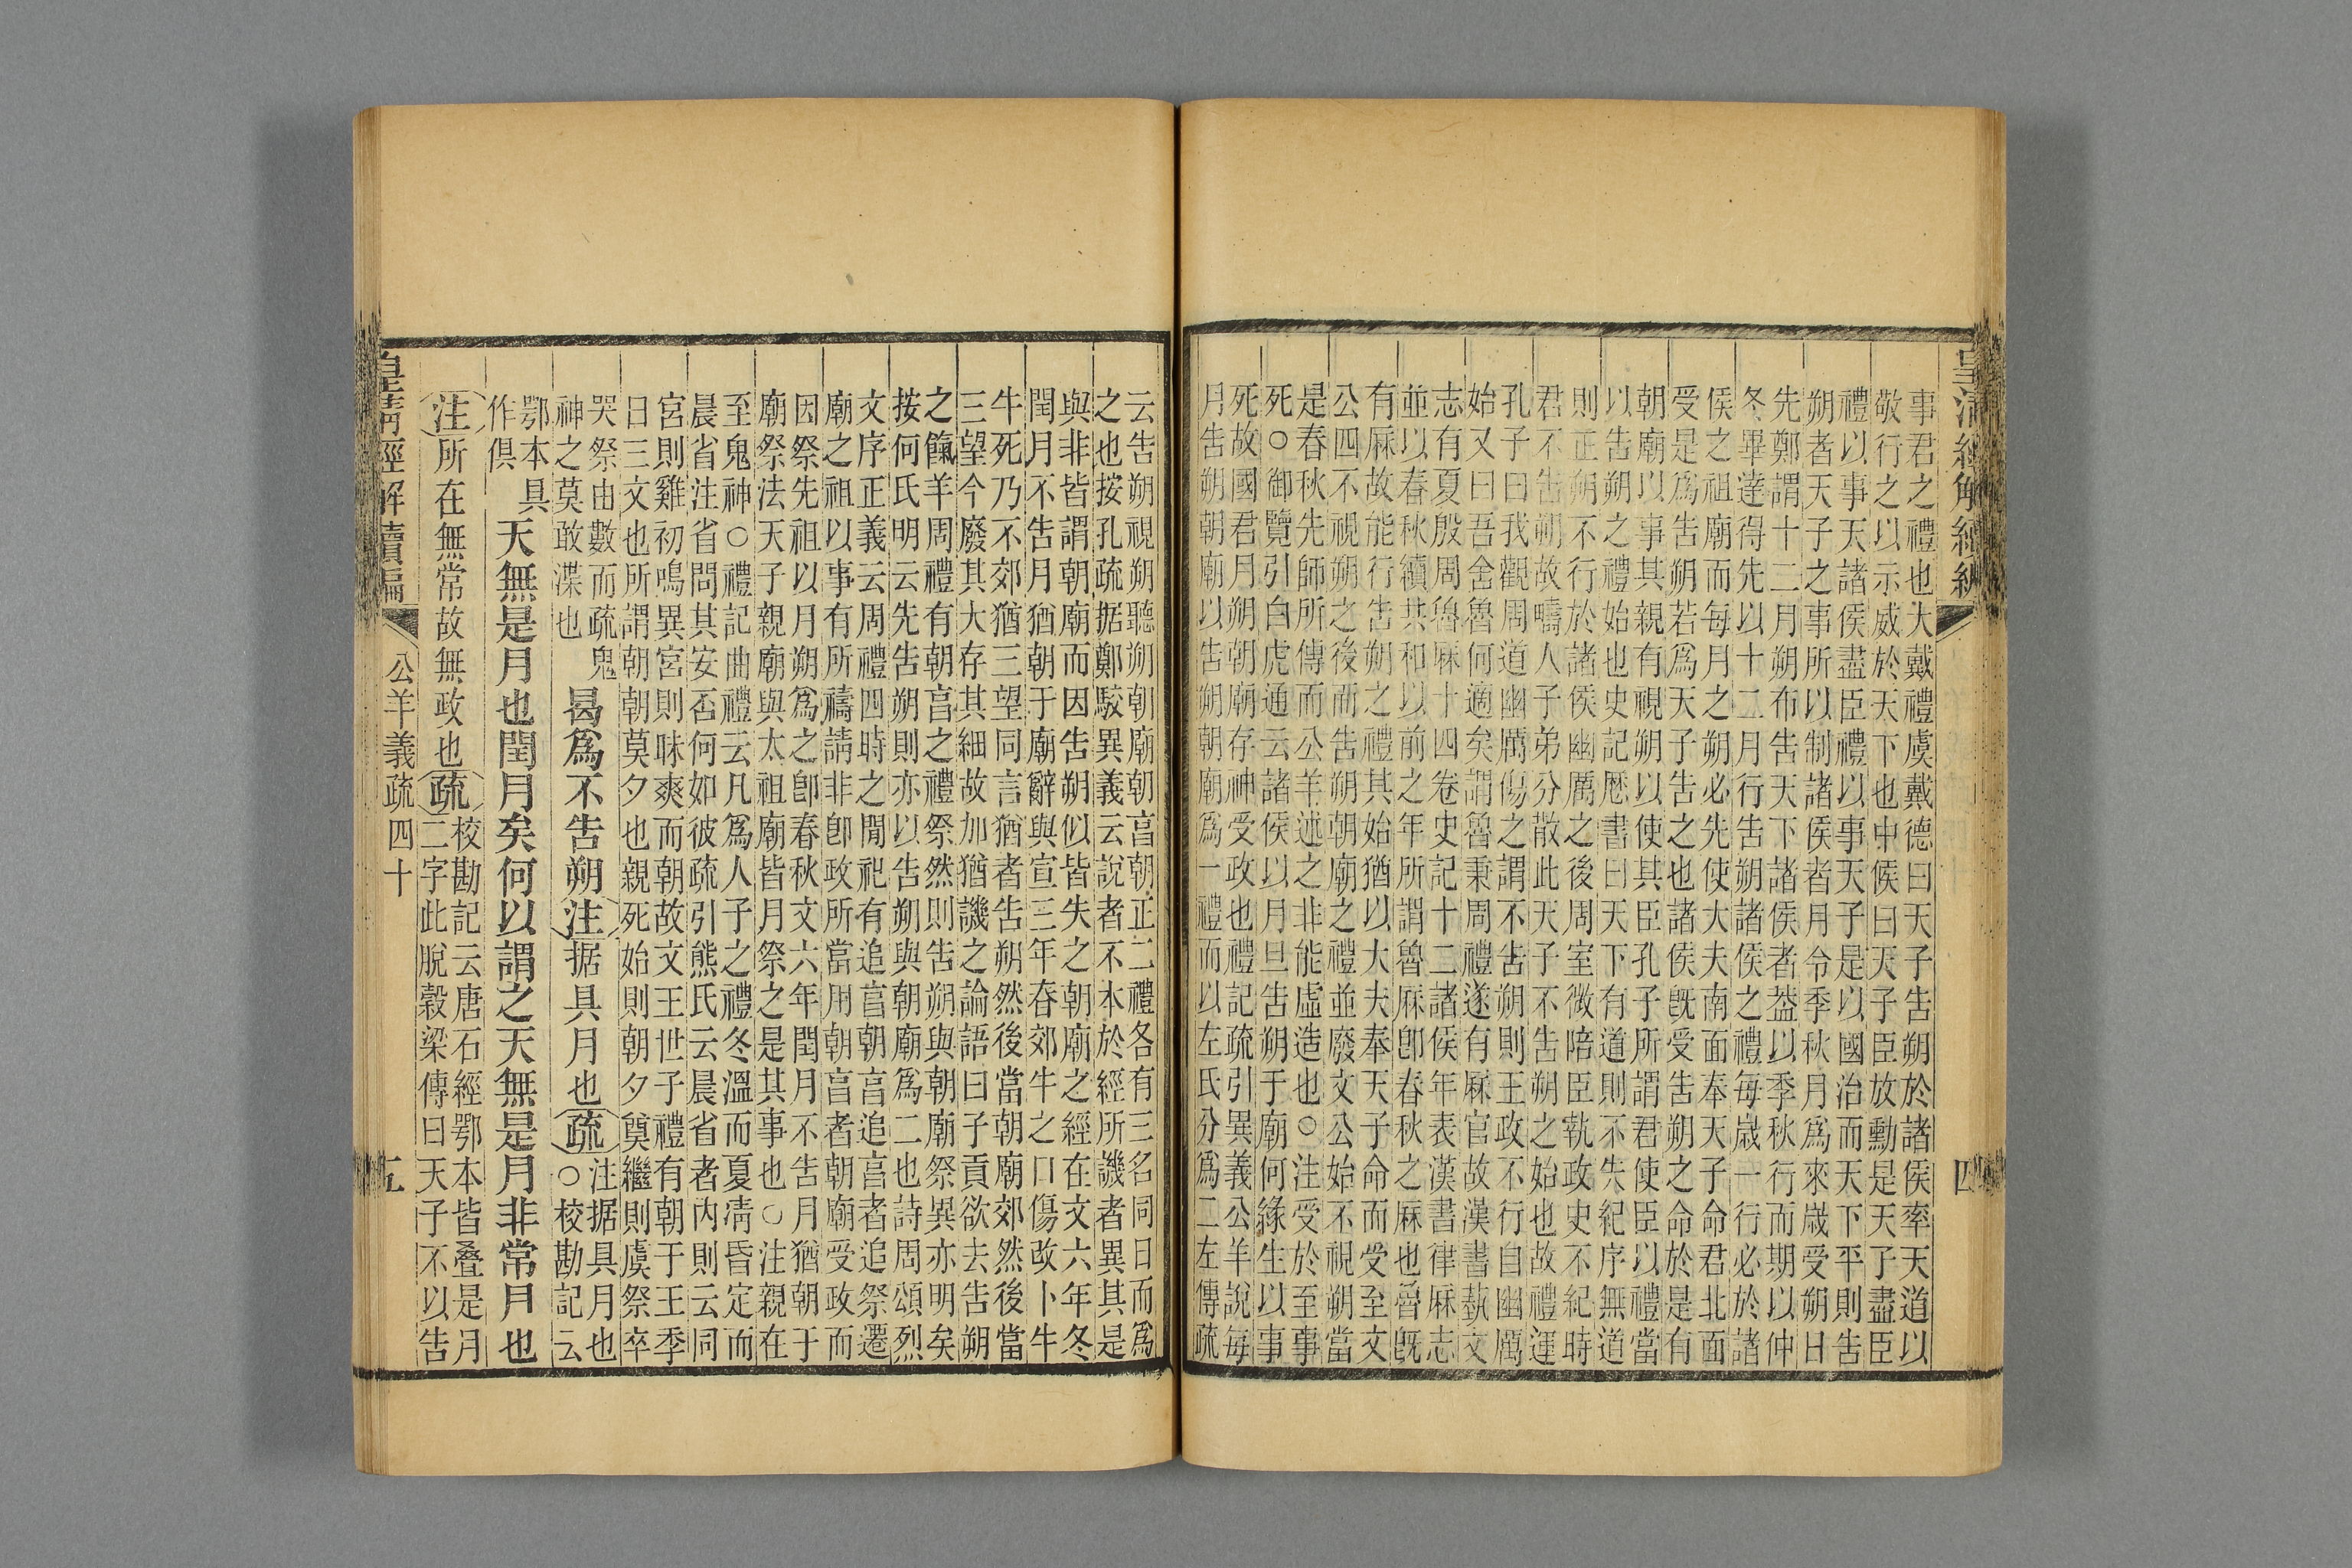 皇清經解續編
四
事君之禮也大戴禮虞戴德曰天子告朔於諸侯率天道以
敬行之以示威於天下也中候曰天子臣放勳是天子盡臣
禮以事天諸侯盡臣禮以事天子是以國治而天下平則告
朔者天子之事所以制諸侯者月令季秋月爲來歲受朔日
先鄭謂十二月朔布告天下諸侯者葢以季秋行而期以仲
冬畢達得先以十二月行告朔諸侯之禮每歲一行必於諸
侯之祖廟而每月之朔必先使大夫南面奉天子命君北面
受是爲告朔若爲天子告之也諸侯旣受告朔之命於是有
朝廟以事其親有視朔以使其臣孔子所謂君使臣以禮當
以告朔之禮始也史記厯書曰天下有道則不失紀序無道
則正朔不行於諸侯幽厲之後周室微陪臣執政史不紀時
君不告朔故疇人子弟分散此天子不告朔之始也故禮運
孔子曰我觀周道幽厲傷之謂不告朔則王政不行自幽厲
始又曰吾舍魯何適矣謂魯秉周禮遂有厤官故漢書藝文
志有夏殷周魯厤十四卷史記十二諸侯年表漢書律厤志
並以春秋續共和以前之年所謂魯厤卽春秋之厤也魯旣
有厤故能行告朔之禮其始猶以大夫奉天子命而受至文
公四不視朔之後而告朔朝廟之禮並廢文公始不視朔當
是春秋先師所傳而公羊述之非能虛造也○注受於至事
死○御覽引白虎通云諸侯以月旦告朔于廟何緣生以事
死故國君月朔朝廟存神受政也禮記疏引異義公羊說每
月告朔朝廟以告朔朝廟爲一禮而以左氏分爲二左傳疏
云告朔視朔聽朔朝廟朝享朝正二禮各有三名同日而爲
之也按孔疏据鄭駮異義云說者不本於經所譏者異其是
與非皆謂朝廟而因告朔似皆失之朝廟之經在文六年冬
閏月不告月猶朝于廟辭與宣三年春郊牛之口傷改卜牛
牛死乃不郊猶三望同言猶者告朔然後當朝廟郊然後當
三望今廢其大存其細故加猶譏之論語曰子貢欲去告朔
之餼羊周禮有朝享之禮祭然則告朔與朝廟祭異亦明矣
按何氏明云先告朔則亦以告朔與朝廟爲二也詩周頌烈
文序正義云周禮四時之閒祀有追享朝享追享者追祭遷
廟之祖以事有所禱請非卽政所當用朝享者朝廟受政而
因祭先祖以月朔爲之卽春秋文六年閏月不告月猶朝于
廟祭法天子親廟與太祖廟皆月祭之是其事也○注親在
至鬼神○禮記曲禮云凡爲人子之禮冬溫而夏凊昏定而
晨省注省問其安否何如彼疏引熊氏云晨省者內則云同
宮則雞初鳴異宮則昧爽而朝故文王世子禮有朝于王季
日三文也所謂朝朝莫夕也親死始則朝夕奠繼則虞祭卒
哭祭由數而疏鬼
神之莫敢渫也
曷爲不告朔注据具月也疏
注据具月也
○校勘記云
鄂本具
作俱
天無是月也閏月矣何以謂之天無是月非常月也
注所在無常故無政也疏
校勘記云唐石經鄂本皆叠是月
二字此脫穀梁傳曰天子不以告
皇清經解續編
公羊義疏四十
五